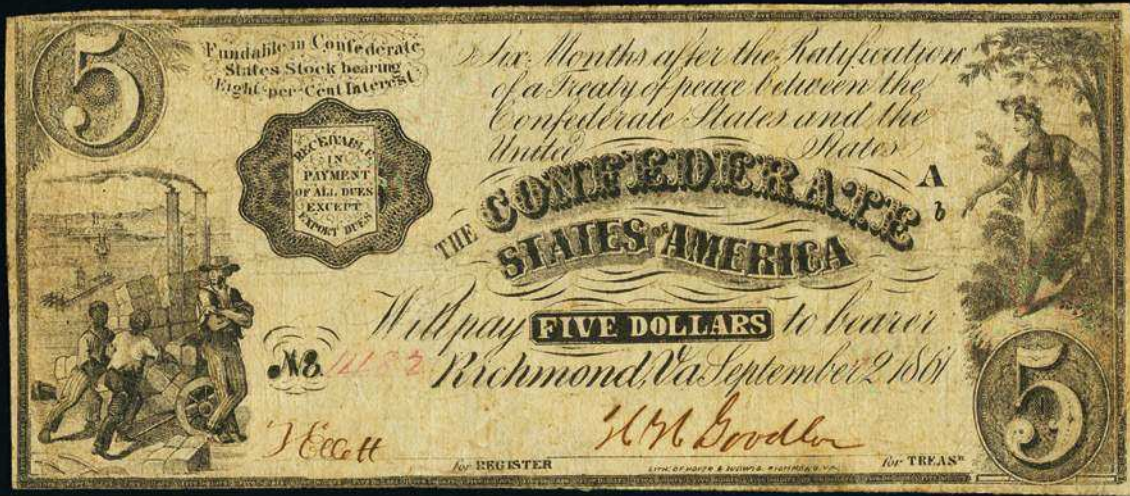 5
Fundable in Confederate
States Stock bearing
Eight per Cent Interest
RECEIVABLE
IN
PAYMENT
OF ALL DUES
EXCEPT
EXPORT DUES
Six Months after the Ratification
of a Treaty of peace between the
Confederate States and the
United States
A
b
THE CONFEDERATE
STATES OF AMERICA
Will pay FIVE DOLLARS to bearer
No.
Richmond, Va September 2 1861
J Ellett
for REGISTER
LITH. OF HOYER & LUDWIG, RICHMOND, VA.
for TREASR
5